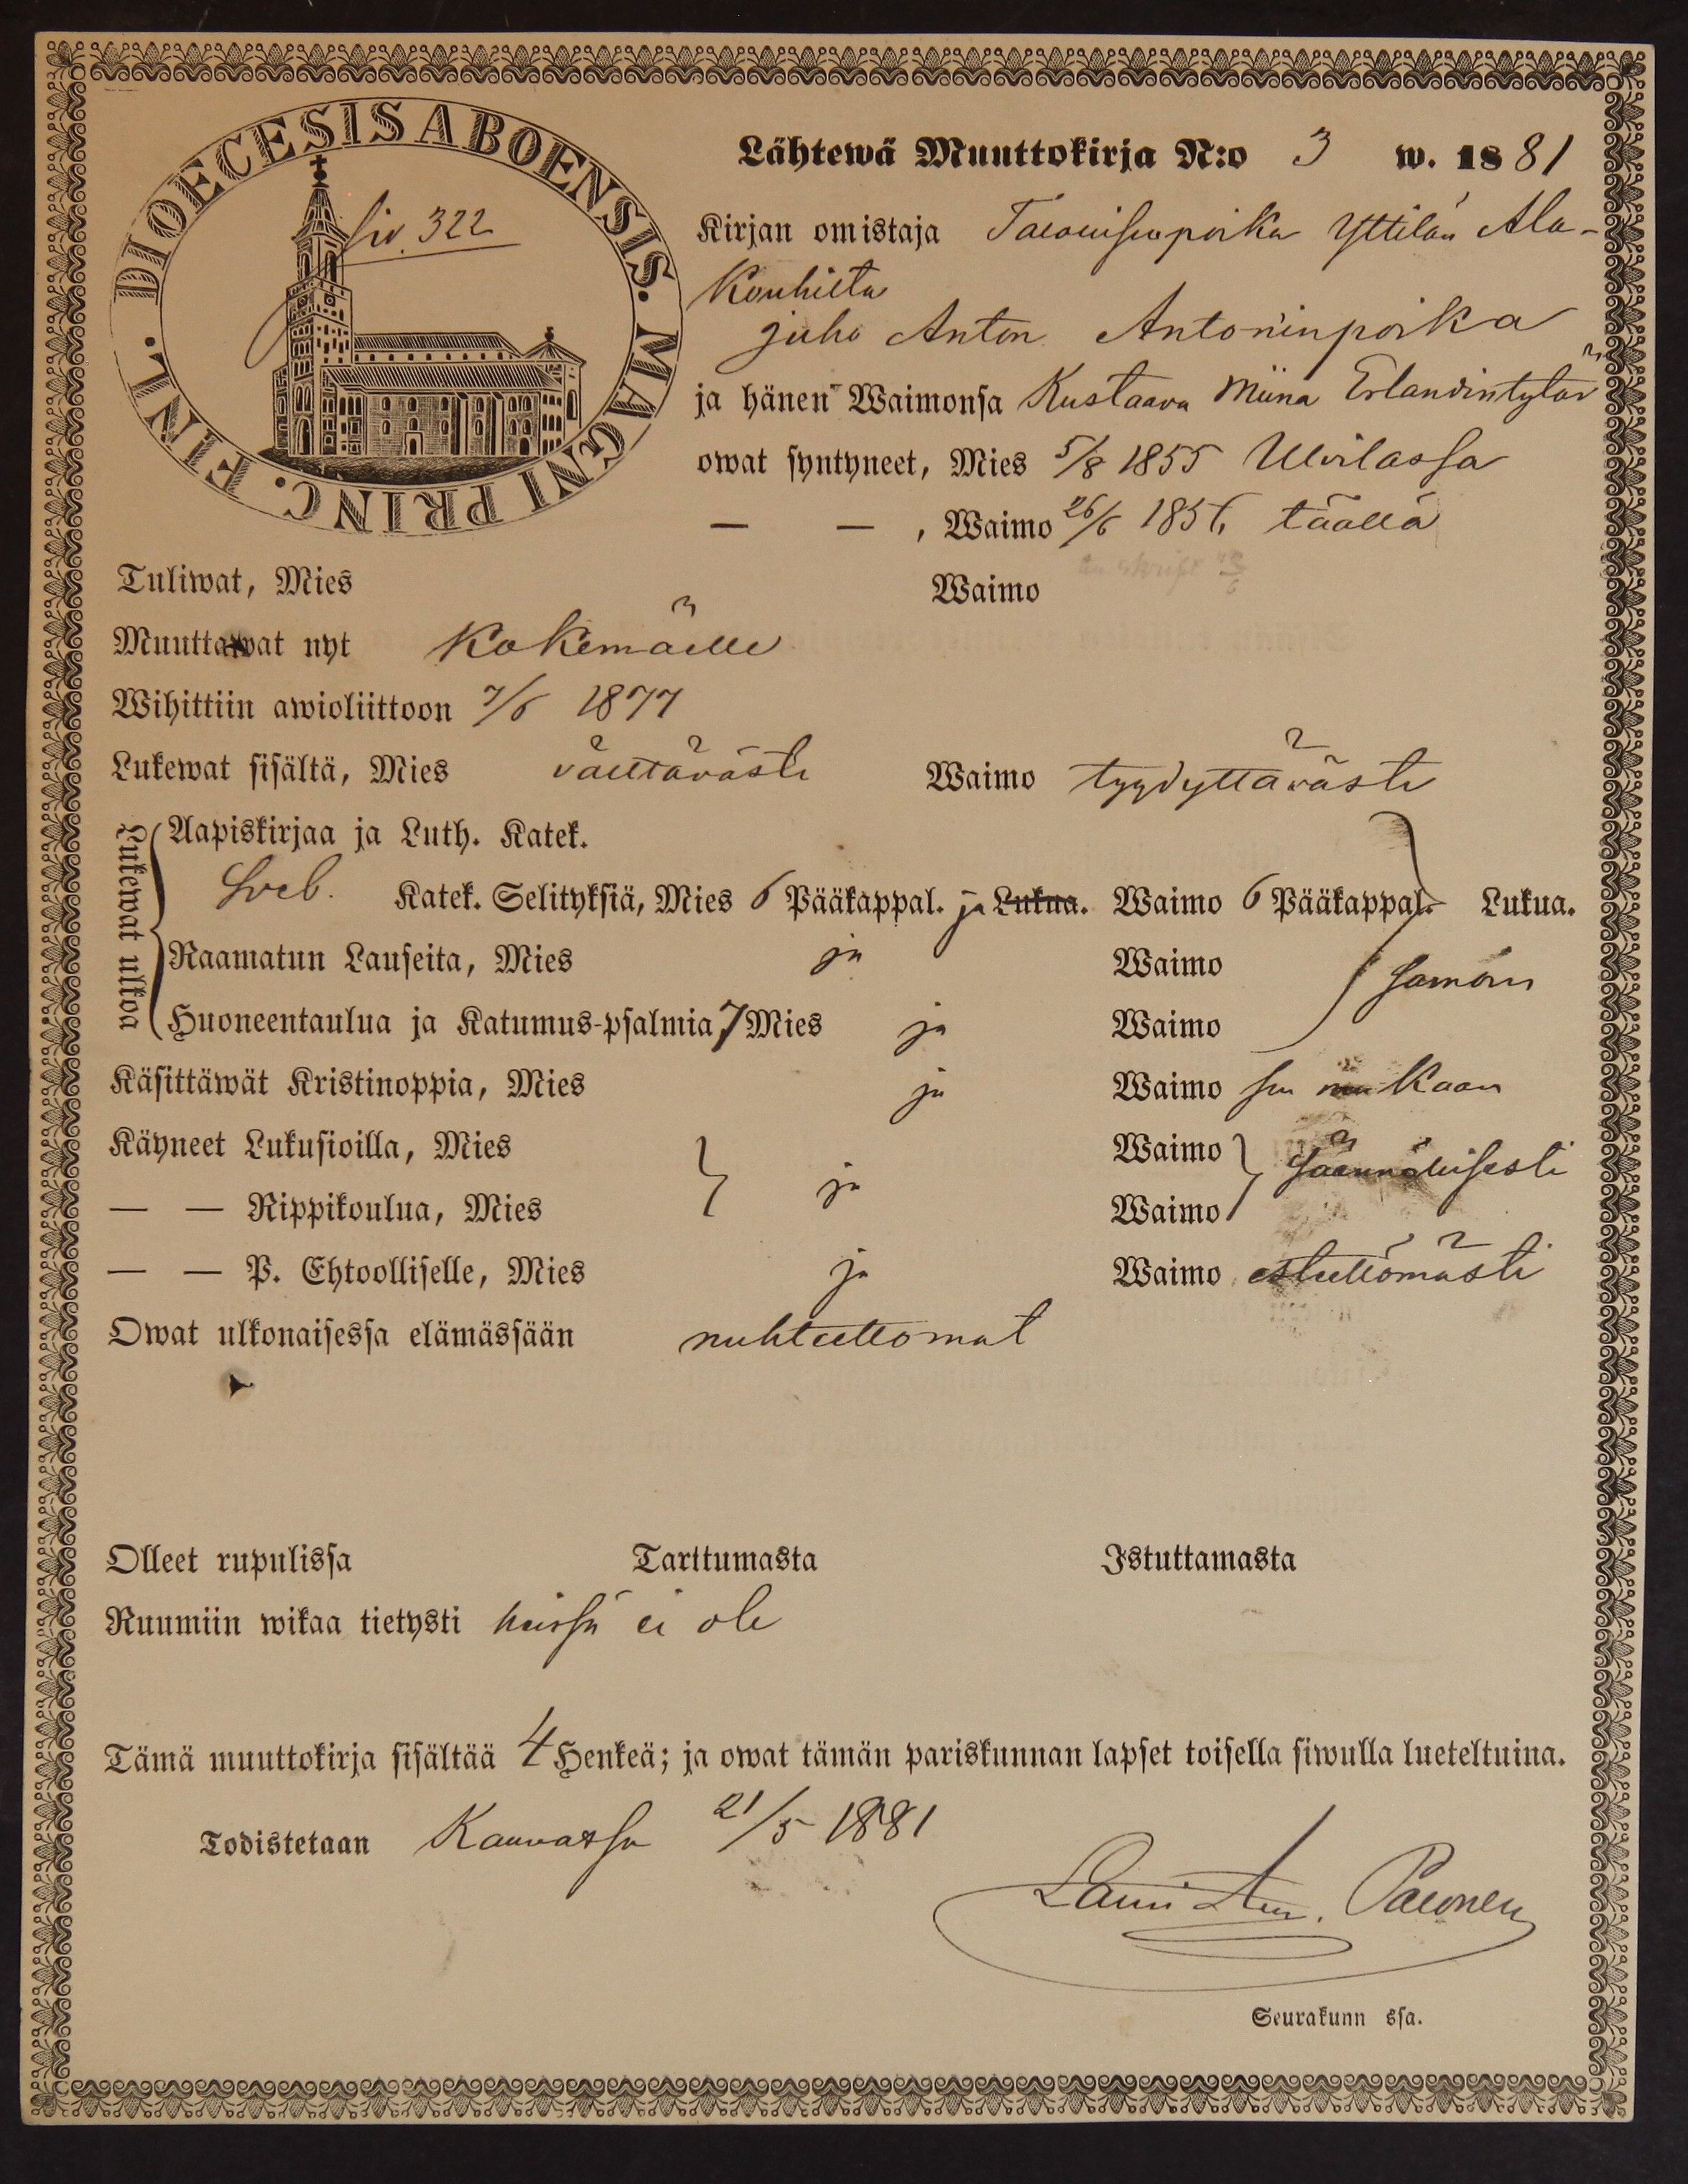 DIOECESIS ABOENSIS. MAGNI PRINC. FINL.
Siv. 322
Lähtewä Muuttokirja N:o 3 w. 1881
Kirjan omistaja Talonisenpoika Yttilän Ala-
Kouhilta
juho Anton Antoninpoika
ja hänen Waimonsa Kustaava Miina Erlandintytär
owat syntyneet, Mies 5/8 1855 Ulvilassa
— — , Waimo 26/6 1856 täällä
Tuliwat, Mies Waimo
Muuttawat nyt Kokemäelle
Wihittiin awioliittoon 7/6 1877
Lukewat sisältä, Mies välttävästi Waimo tyydyttävästi
Lukewat ulkoa
Aapiskirjaa ja Luth. Katek.
Sveb. Katek. Selityksiä, Mies 6 Pääkappal. ja Lukua. Waimo 6 Pääkappal. Lukua.
Raamatun Lauseita, Mies ja Waimo samoin
Huoneentaulua ja Katumus-psalmia 7 Mies ja Waimo
Käsittäwät Kristinoppia, Mies ja Waimo sen mukaan
Käyneet Lukusioilla, Mies ja Waimo säännöllisesti
— — Rippikoulua, Mies Waimo
— — P. Ehtoolliselle, Mies ja Waimo esteettömästi
Owat ulkonaisessa elämässään nuhteettomat
Olleet rupulissa Tarttumasta Istuttamasta
Ruumiin wikaa tietysti heissä ei ole
Tämä muuttokirja sisältää 4 Henkeä; ja owat tämän pariskunnan lapset toisella siwulla lueteltuina.
Todistetaan Kauvatsa 21/5 1881
Palonen
Seurakunn ssa.